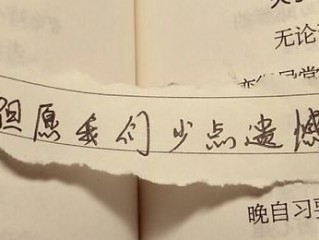 无论
但愿我们少点遗憾
晚自习要